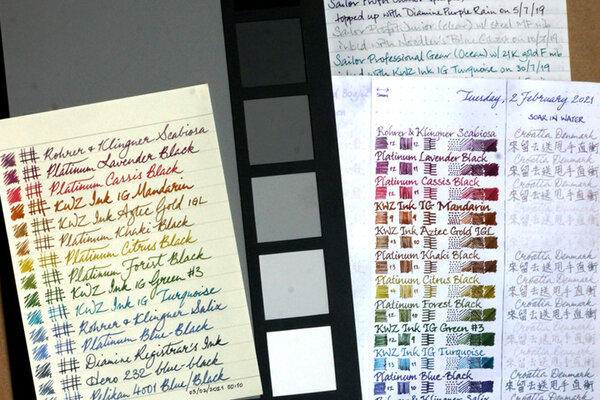 topped up with Diamine Purple Rain on 5/7/19
Sailor Profit Junior (clear) w/ steel MF nib
inked with Noodler's
on 10/7/19
Sailor Professional Gear (Ocean) w/ 21K gold F nib
inked with KWZ Ink IG Turquoise on 30/7/19
Rohrer & Klingner Scabiosa
Platinum Lavender Black
Platinum Cassis Black
KWZ Ink IG Mandarin
KWZ Ink Aztec Gold IGL
Platinum Khaki Black
Platinum Citrus Black
Platinum Forest Black
KWZ Ink IG Green #3
KWZ Ink IG Turquoise
Rohrer & Klingner Salix
Platinum Blue Black
Diamine Registrar's Ink
Hero 232 blue-black
Pelikan 4001 Blue/Black
03/02/2021
Tuesday, 2 February 2021
SOAK IN WATER
Rohrer & Klingner Scabiosa
Platinum Lavender Black
Platinum Cassis Black
KWZ Ink IG Mandarin
KWZ Ink Aztec Gold IGL
Platinum Khaki Black
Platinum Citrus Black
Platinum Forest Black
KWZ Ink IG Green #3
KWZ Ink IG Turquoise
Platinum Blue-Black
Rohrer & Klingner Salix
Croatia Denmark
來留去送甩手直衝
Croatia Denmark
來留去送甩手直衝
Croatia Denmark
來留去送甩手直衝
Croatia Denmark
來留去送甩手直衝
Croatia Denmark
來留去送甩手直衝
Croatia Denmark
來留去送甩手直衝
Croatia Denmark
來留去送甩手直衝
Croatia Denmark
來留去送甩手直衝
Croatia Denmark
來留去送甩手直衝
Croatia Denmark
來留去送甩手直衝
Croatia Denmark
來留去送甩手直衝
Croatia Denmark